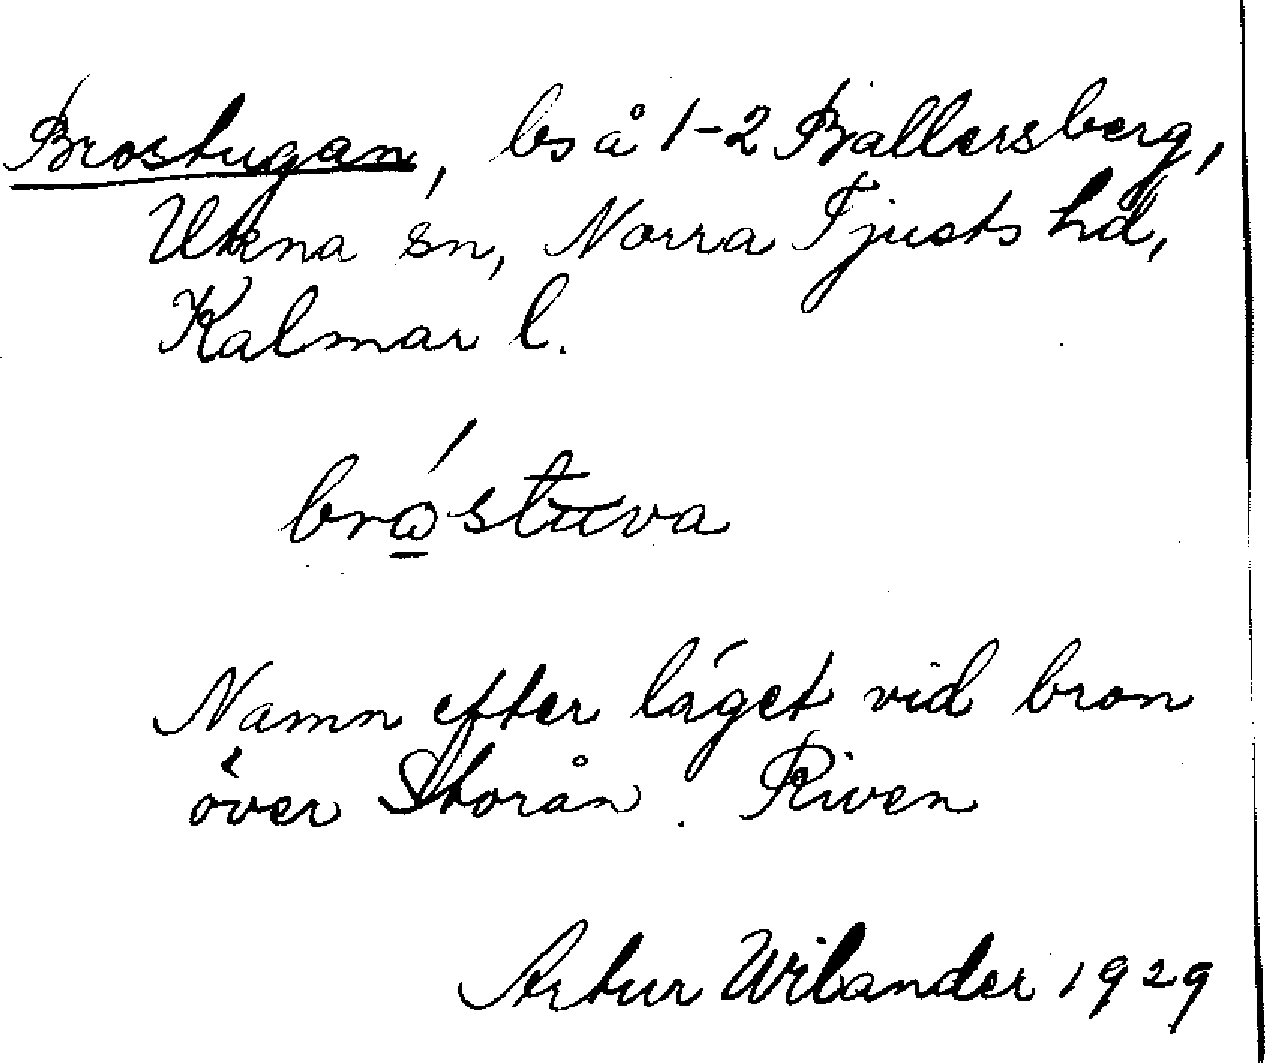 Brostugan, bs å 1-2 Ballersberg,
Ukna sn, Norra Tjusts hd,
Kalmar l.
bro̲´stuva
Namn efter läget vid bron
över Storån. Riven
Artur Wilander 1929